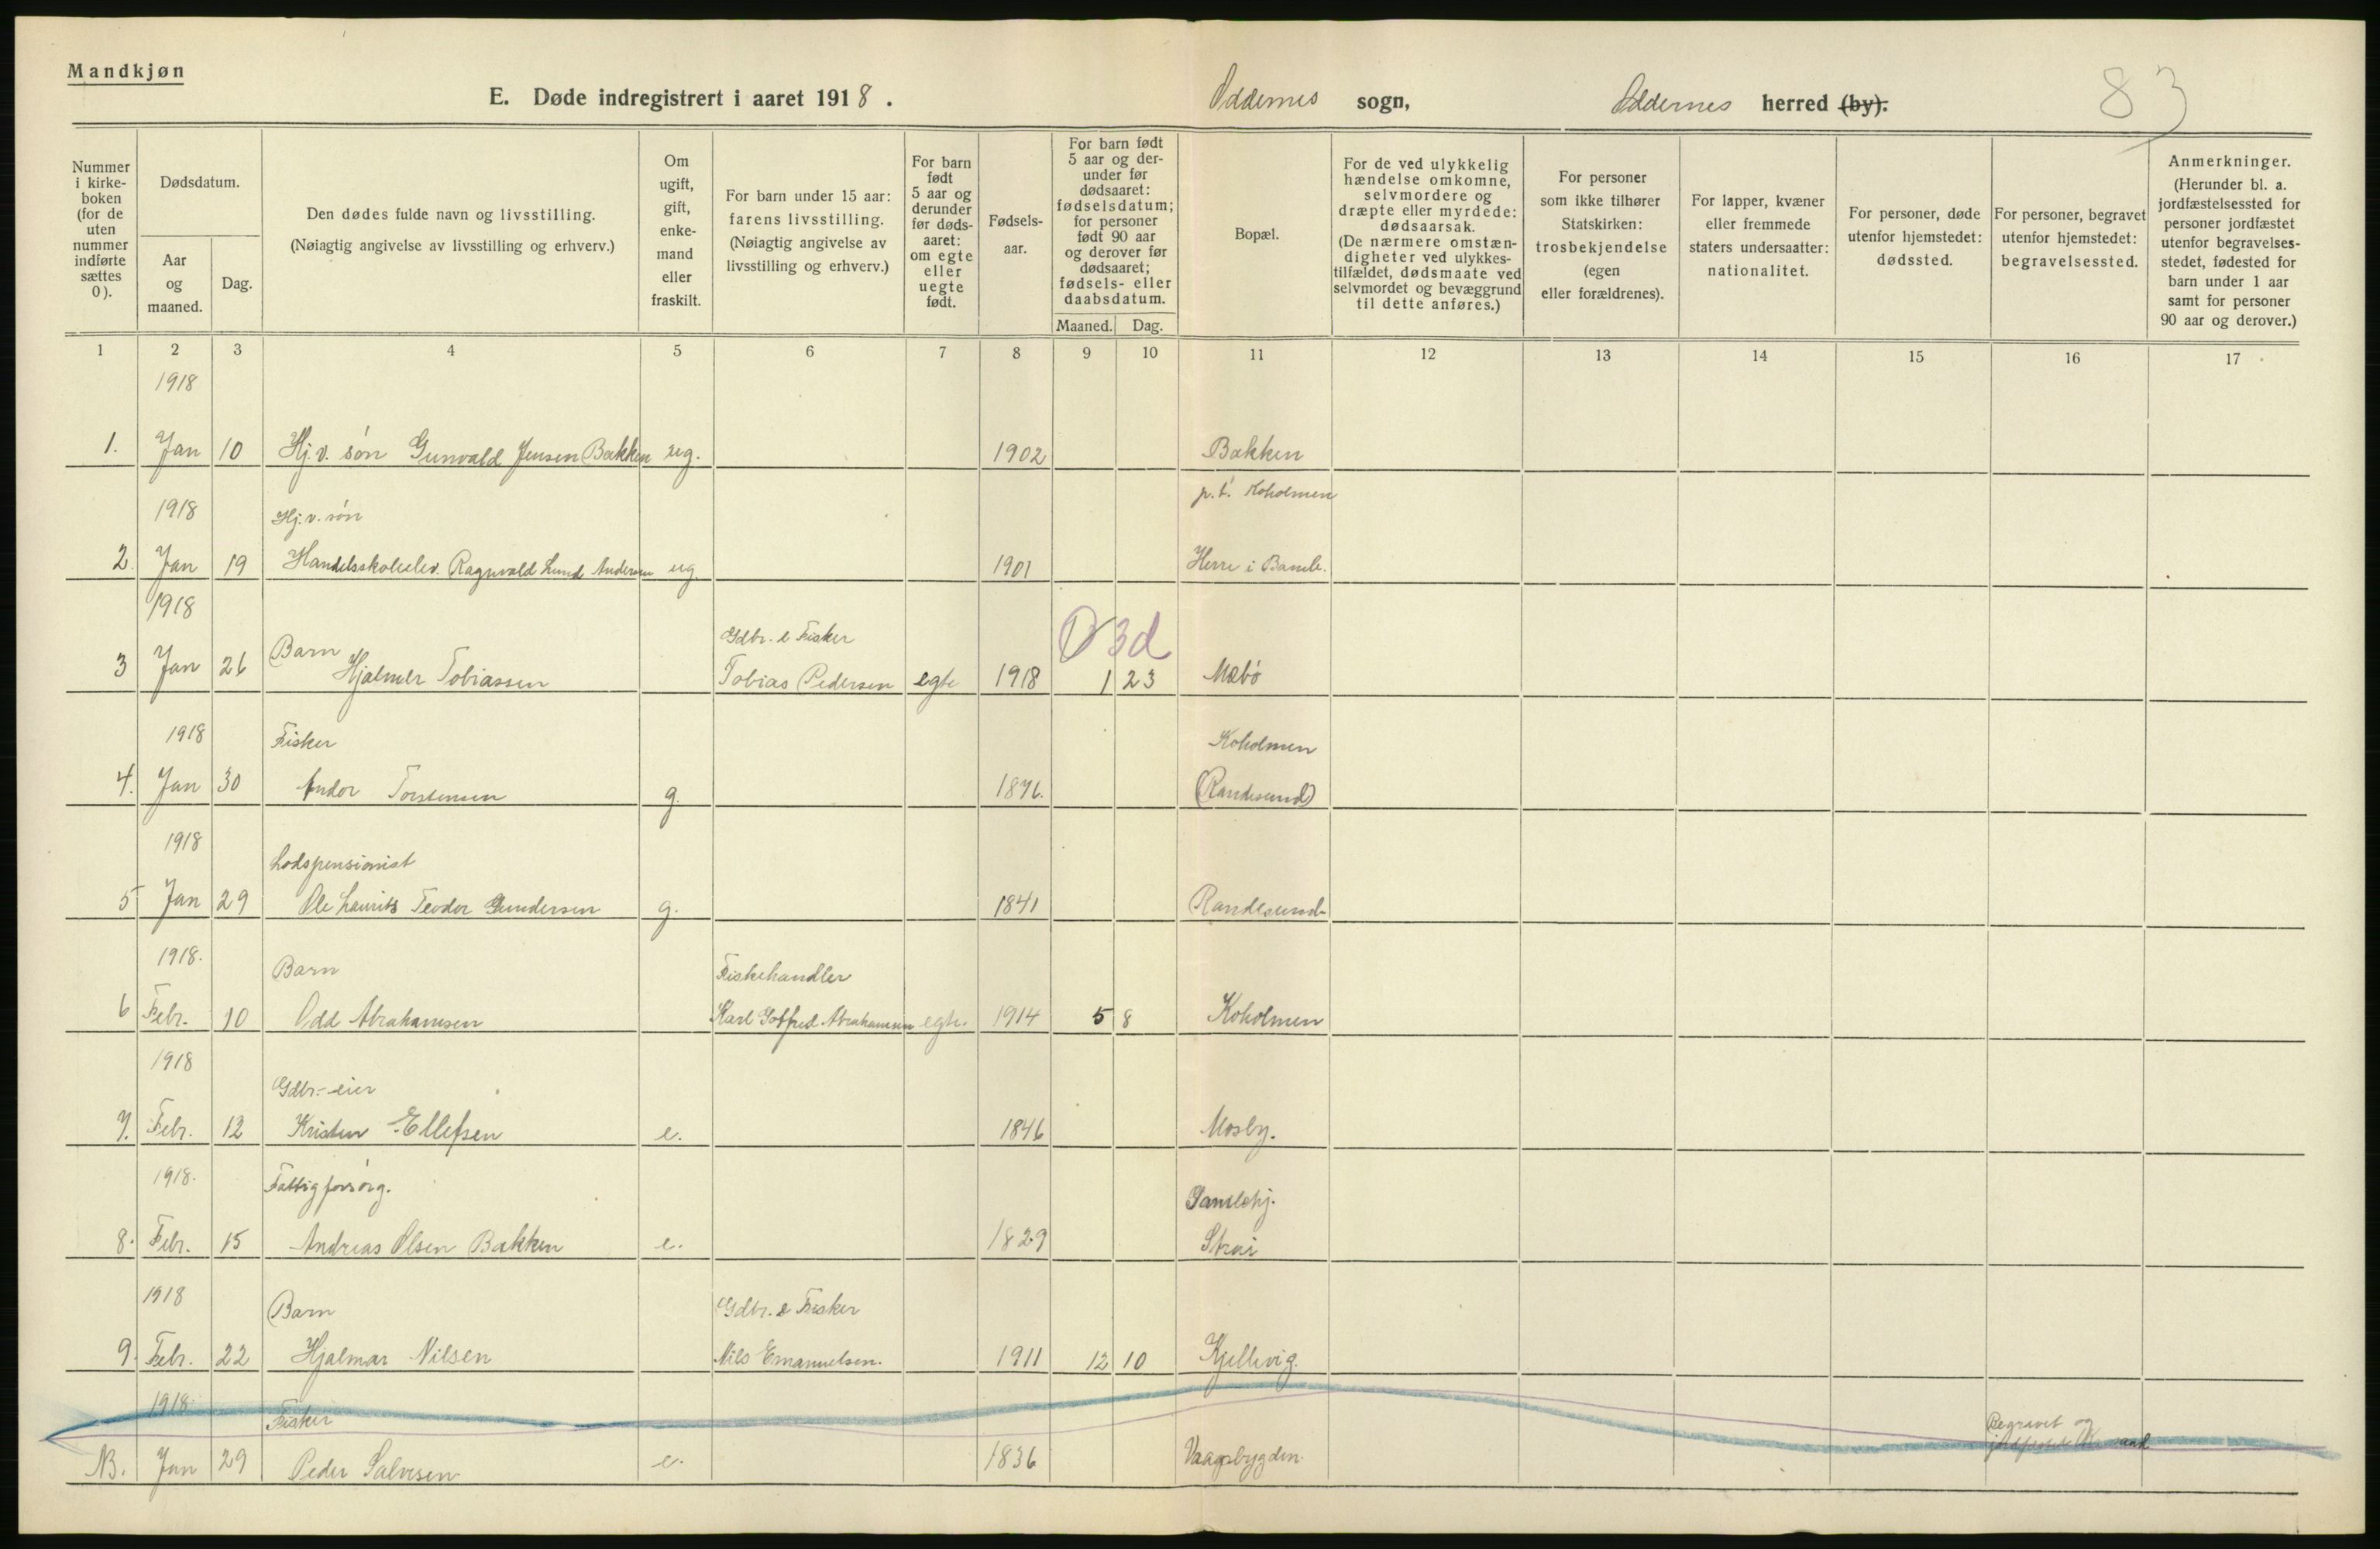 Mandkjøn
E. Døde indregistrert i aaret 1918. Oddernes sogn, Oddernes herred (by). 83
Nummer i kirkeboken (for de uten nummer indførte sættes 0).
Dødsdatum.
Aar og maaned.
Dag.
Den dødes fulde navn og livsstilling.
(Nøiagtig angivelse av livsstilling og erhverv.)
Om ugift, gift, enkemand eller fraskilt.
For barn under 15 aar: farens livsstilling.
(Nøiagtig angivelse av livsstilling og erhverv.)
For barn født 5 aar og derunder før dødsaaret: om egte eller uegte født.
Fødselsaar.
For barn født 5 aar og derunder før dødsaaret: fødselsdatum; for personer født 90 aar og derover før dødsaaret; fødsels- eller daabsdatum.
Maaned. Dag.
Bopæl.
For de ved ulykkelig hændelse omkomne, selvmordere og dræpte eller myrdede: dødsaarsak.
(De nærmere omstændigheter ved ulykkestilfældet, dødsmaate ved selvmordet og bevæggrund til dette anføres.)
For personer som ikke tilhører Statskirken: trosbekjendelse (egen eller forældrenes).
For lapper, kvæner eller fremmede staters undersaatter: nationalitet.
For personer, døde utenfor hjemstedet: dødssted.
For personer, begravet utenfor hjemstedet: begravelsessted.
Anmerkninger.
(Herunder bl. a. jordfæstelsessted for personer jordfæstet utenfor begravelsesstedet, fødested for barn under 1 aar samt for personer 90 aar og derover.)
1 2 3 4 5 6 7 8 9 10 11 12 13 14 15 16 17
1918
1. Jan 10 Hj. v. søn Gunvald Jensen Bakken ug. 1902 Bakken
1918 Hj. v. søn p. t. Koholmen
2. Jan 19 Handelsskoleelev. Ragnvald Lund Andersen ug. 1901 Herre i Bamle.
1918
Barn Gdbr. & Fisker 3d
3 Jan 26 Hjalmer Tobiassen Tobias Pedersen egte 1918 1 23 Mæbø
1918 Fisker Koholmen
4. Jan 30 Andor Torstensen g. 1876. (Randesund)
1918 Lodspensionist
5 Jan 29 Ole Laurits Teodor Gundersen g. 1841 Randesund
1918. Barn Fiskehandler
6 Febr. 10 Odd Abrahamsen Karl Gotfred Abrahamsen egte. 1914 5 8 Koholmen
1918 Gdbr.-eier
7. Febr. 12 Kristen Ellefsen e. 1846 Mosby.
1918. Fattigforsørg. Gamlehj.
8. Febr. 15 Andreas Olsen Bakken e. 1829 Strai
1918 Barn Gdbr. & Fisker
9. Febr. 22 Hjalmar Nilsen Nils Emanuelsen. 1911 12 10 Kjellevig.
1918 Fisker Begravet og
jordfæstet
NB. Jan 29 Peder Salvesen e. 1836 Vaagsbygden.